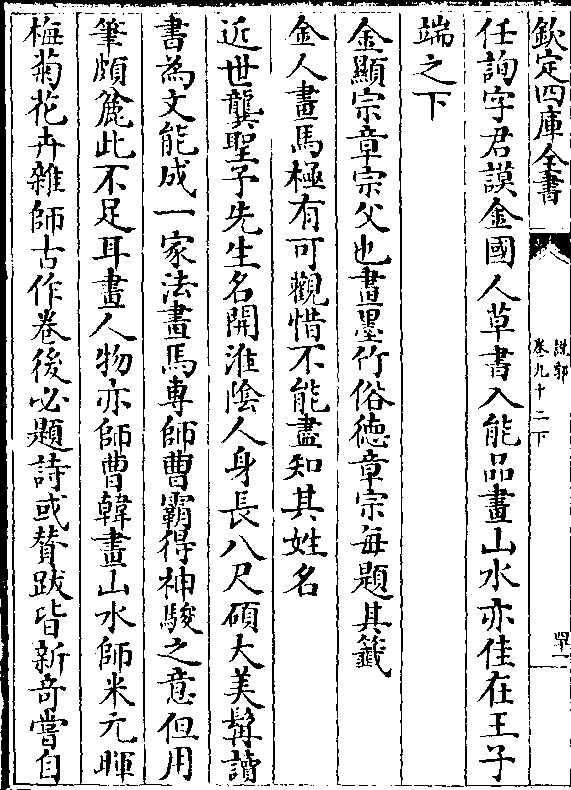 欽定四庫全書
說郛
卷九十二下
罕一
任詢字君謨金國人草書入能品畫山水亦佳在王子
端之下
金顯宗章宗父也畫墨竹俗徳章宗每題其籤
金人畫馬極有可觀惜不能盡知其姓名
近世龔聖予先生名開淮陰人身長八尺碩大美髯讀
書為文能成一家法畫馬専師曹霸得神駿之意但用
筆頗麄此不足耳畫人物亦師曹韓畫山水師米元暉
梅菊花卉雜師古作卷後必題詩或賛跋皆新奇嘗自